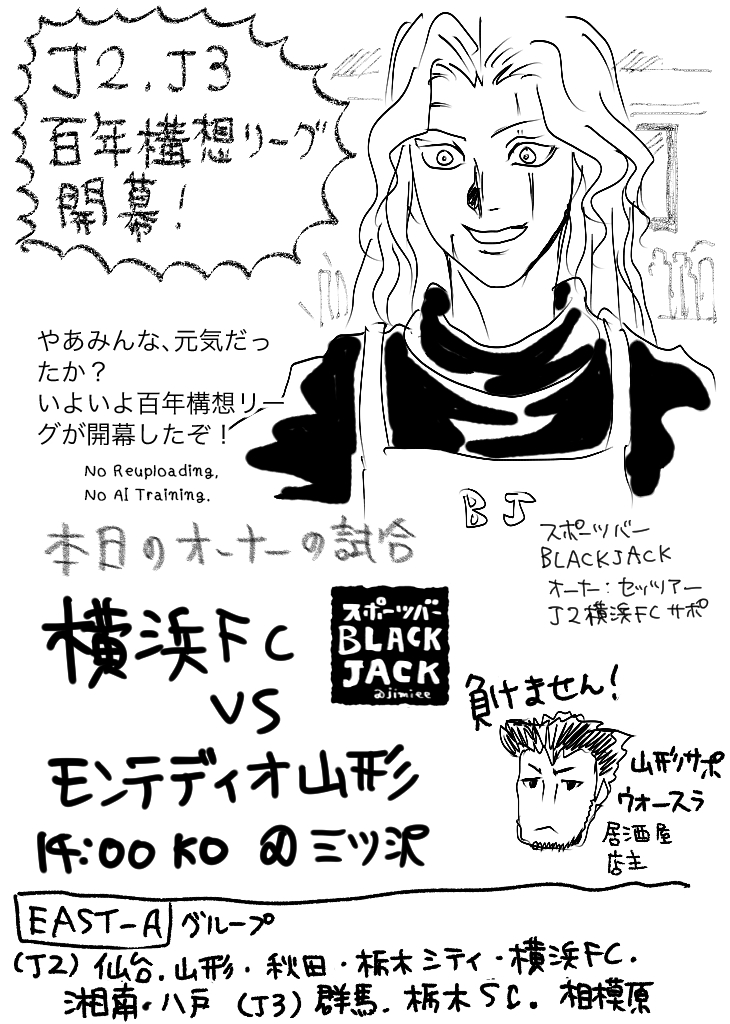 J2.J3
百年構想リーグ
開幕!
やあみんな、元気だっ
たか？
いよいよ百年構想リー
グが開幕したぞ！
No Reuploading,
No AI Training.
BJ
本日のオーナーの試合
スポーツバー
BLACKJACK
オーナー:セッツァー
J2横浜FCサポ
横浜FC
VS
モンテディオ山形
14:00 KO @三ツ沢
スポーツバー
BLACK
JACK
@jimiee
負けません!
山形サポ
ウォースラ
居酒屋
店主
EAST-A グループ
(J2) 仙台.山形・秋田・栃木シティ・横浜FC.
湘南・八戸 (J3) 群馬.栃木SC.相模原